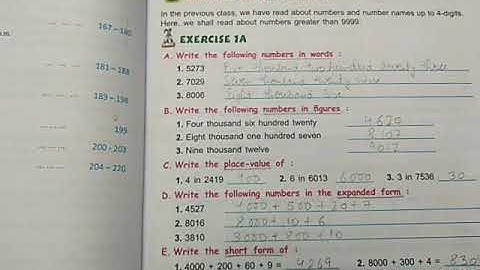 167-180
181-188
189-198
199
200-203
204-220
In the previous class, we have read about numbers and number names up to 4-digits.
Here, we shall read about numbers greater than 9999.
EXERCISE 1A
A. Write the following numbers in words :
1. 5273 Five thousand two hundred seventy three
2. 7029 Seven thousand twenty nine
3. 8006 Eight thousand six
B. Write the following numbers in figures :
1. Four thousand six hundred twenty 4620
2. Eight thousand one hundred seven 8107
3. Nine thousand twelve 9012
C. Write the place-value of :
1. 4 in 2419 400 2. 6 in 6013 6000 3. 3 in 7536 30
D. Write the following numbers in the expanded form :
1. 4527 4000 + 500 + 20 + 7
2. 8016 8000 + 10 + 6
3. 3810 3000 + 800 + 10
E. Write the short form of :
1. 4000 + 200 + 60 + 9 = 4269 2. 8000 + 300 + 4 = 830